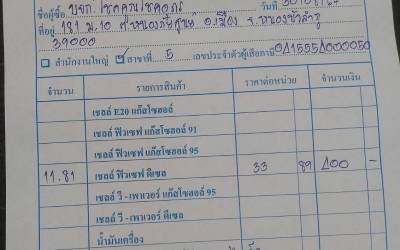 ชื่อผู้ซื้อ บจก. โชคคูณโชคอุดร วันที่
ที่อยู่ 181 ม.10 ต.หนองภัยศูนย์ อ.เมือง จ.หนองบัวลำภู
39000
สำนักงานใหญ่ ☑ สาขาที่ 5 เลขประจำตัวผู้เสียภาษี
จำนวน รายการสินค้า ราคาต่อหน่วย จำนวนเงิน
เชลล์ E20 แก๊สโซฮอล์
เชลล์ ฟิวเซฟ แก๊สโซฮอล์ 91
เชลล์ ฟิวเซฟ แก๊สโซฮอล์ 95
11.81 เชลล์ ฟิวเซฟ ดีเซล 33 89 400 -
เชลล์ วี - เพาเวอร์ แก๊สโซฮอล์ 95
เชลล์ วี - เพาเวอร์ ดีเซล
น้ำมันเครื่อง